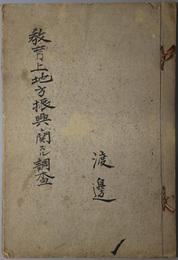 教育上地方振興ニ関スル調査
渡邊